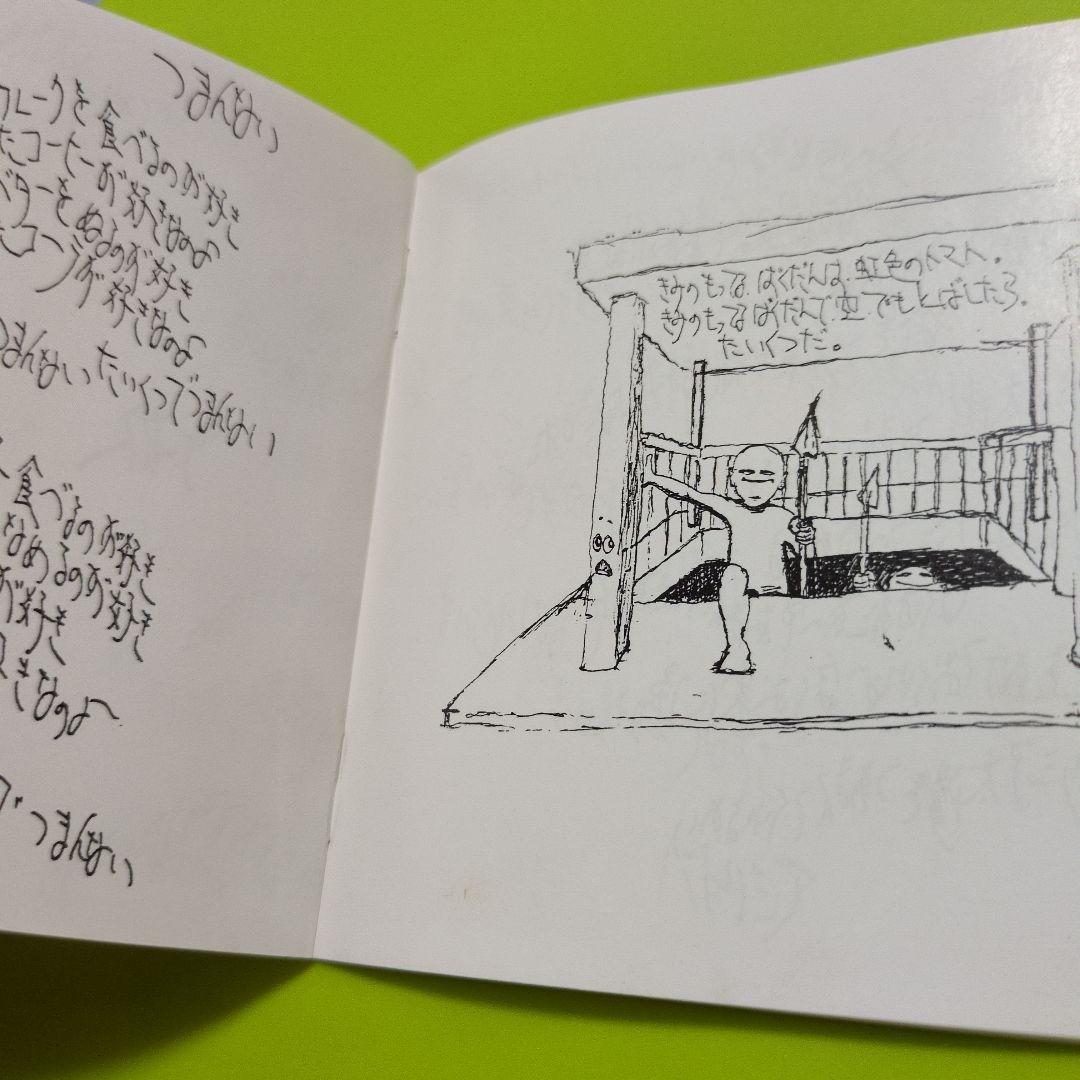 つまんない
フレークを食べるのが好き
たコーヒーが好きなのよ
バターをぬるのが好き
たコーラが好きなのよ
つまんない たいくつでつまんない
食べるのが好き
なめるのが好き
が好き
好きなのよ
つまんない
きみのもってる ばくだんは、虹色のトマト。
きみのもってるばくだんで 空でもとばしたら。
たいくつだ。